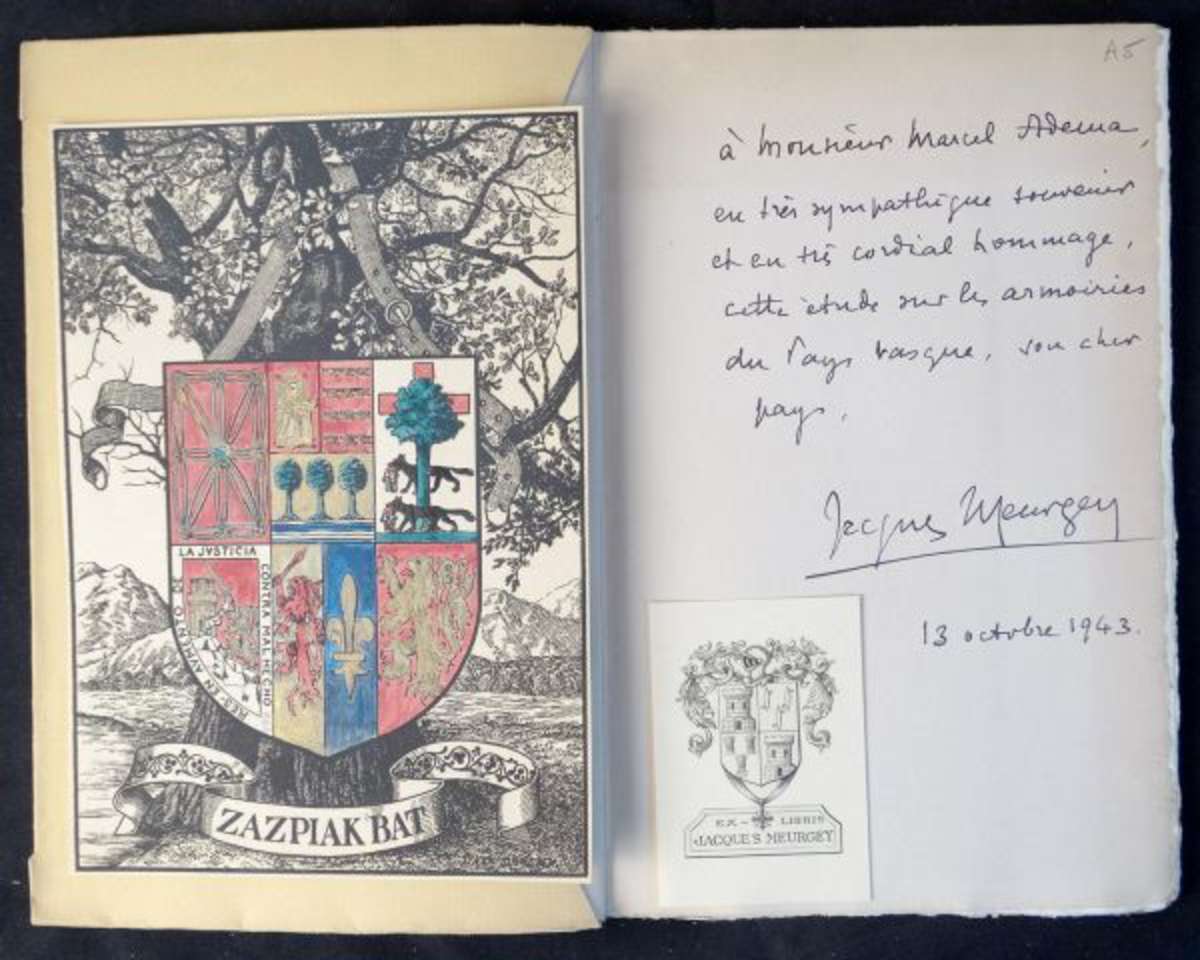 LA JVSTICIA
CONTRA MAL HECHO
ZAZPIAK BAT
A5
à Monsieur Marcel Adema,
en très sympathique souvenir
et en très cordial hommage,
cette étude sur les armoiries
du Pays basque, son cher
pays,
Jacques Meurgey
13 octobre 1943.
EX-LIBRIS
JACQUES MEURGEY